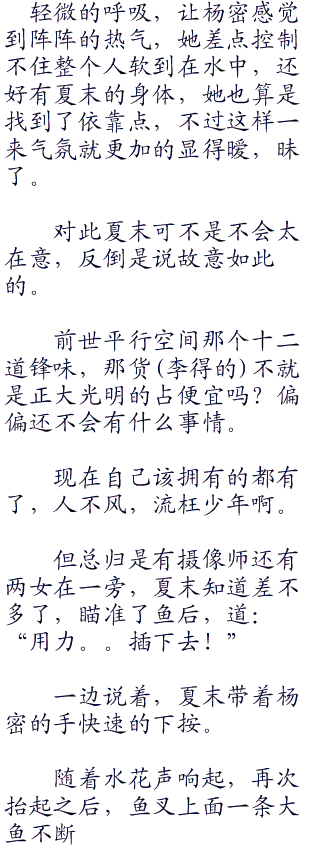 轻微的呼吸，让杨密感觉
到阵阵的热气，她差点控制
不住整个人软到在水中，还
好有夏末的身体，她也算是
找到了依靠点，不过这样一
来气氛就更加的显得暧，昧
了。
对此夏末可不是不会太
在意，反倒是说故意如此
的。
前世平行空间那个十二
道锋味，那货(李得的)不就
是正大光明的占便宜吗？偏
偏还不会有什么事情。
现在自己该拥有的都有
了，人不风，流枉少年啊。
但总归是有摄像师还有
两女在一旁，夏末知道差不
多了，瞄准了鱼后，道：
“用力。。插下去！”
一边说着，夏末带着杨
密的手快速的下按。
随着水花声响起，再次
抬起之后，鱼叉上面一条大
鱼不断